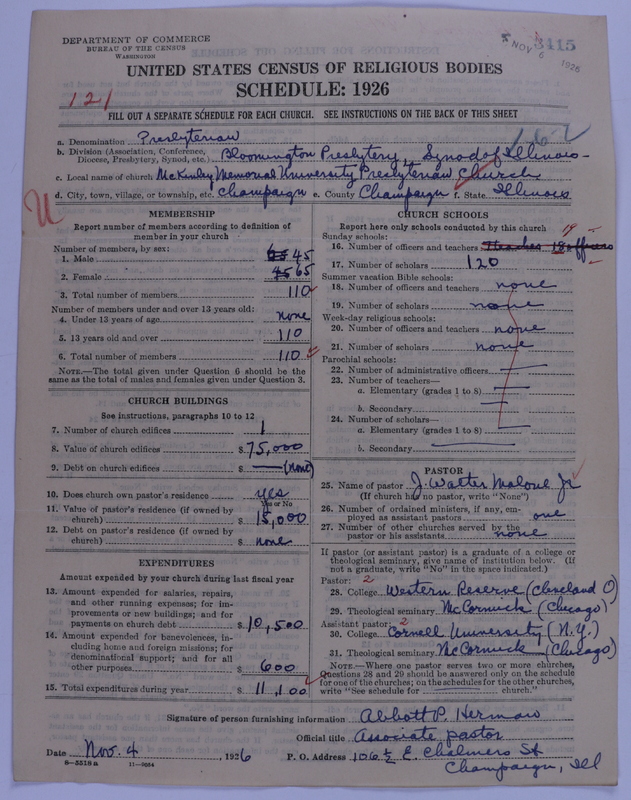 DEPARTMENT OF COMMERCE
BUREAU OF THE CENSUS
WASHINGTON
3415
NOV 6 1926
UNITED STATES CENSUS OF RELIGIOUS BODIES
SCHEDULE: 1926
121
FILL OUT A SEPARATE SCHEDULE FOR EACH CHURCH. SEE INSTRUCTIONS ON THE BACK OF THIS SHEET
162
a. Denomination Presbyterian
b. Division (Association, Conference, Diocese, Presbytery, Synod, etc.) Bloomington Presbytery, Synod of Illinois
c. Local name of church McKinley Memorial University Presbyterian Church
d. City, town, village, or township, etc. Champaign e. County Champaign f. State Illinois
U
MEMBERSHIP
Report number of members according to definition of
member in your church
Number of members, by sex:
1. Male 45
2. Female 65
3. Total number of members 110
Number of members under and over 13 years old:
4. Under 13 years of age none
5. 13 years old and over 110
6. Total number of members 110
NOTE.—The total given under Question 6 should be
same as the total of males and females given under Question 3.
CHURCH BUILDINGS
See instructions, paragraphs 10 to 12
7. Number of church edifices 1
8. Value of church edifices $ 75,000
9. Debt on church edifices $ — (none)
10. Does church own pastor's residence yes
Yes or No
11. Value of pastor's residence (if owned by
church) $ 15,000
12. Debt on pastor's residence (if owned by
church) $ none
EXPENDITURES
Amount expended by your church during last fiscal year
13. Amount expended for salaries, repairs,
and other running expenses; for im-
provements or new buildings; and for
payments on church debt $ 10,500
14. Amount expended for benevolences, in-
cluding home and foreign missions; for
denominational support; and for all
other purposes $ 600
15. Total expenditures during year $ 11,100
CHURCH SCHOOLS
Report here only schools conducted by this church
Sunday schools:
19
16. Number of officers and teachers 11 teachers 18 officers
17. Number of scholars 120
Summer vacation Bible schools:
18. Number of officers and teachers none
19. Number of scholars none
Week-day religious schools:
20. Number of officers and teachers none
21. Number of scholars none
Parochial schools:
22. Number of administrative officers —
23. Number of teachers—
a. Elementary (grades 1 to 8) —
b. Secondary —
24. Number of scholars—
a. Elementary (grades 1 to 8) —
b. Secondary —
PASTOR
25. Name of pastor J. Walter Malone Jr
(If church has no pastor, write "None")
26. Number of ordained ministers, if any, em-
ployed as assistant pastors one
27. Number of other churches served by the
pastor or his assistants none
If pastor (or assistant pastor) is a graduate of a college or
theological seminary, give name of institution below. (If
not a graduate, write "No" in the space indicated.)
Pastor: 2
28. College Western Reserve (Cleveland O)
29. Theological seminary McCormick (Chicago)
Assistant pastor: 2
30. College Cornell University (N.Y.)
31. Theological seminary McCormick (Chicago)
NOTE.—Where one pastor serves two or more churches,
Questions 28 and 29 should be answered only on the schedule
for one of the churches; on the schedules for the other churches,
write "See schedule for ———— church."
Signature of person furnishing information Abbott P. Herman
Official title Associate pastor
Date Nov. 4, 1926 P. O. Address 106½ E. Chalmers St
Champaign, Ill
8—5518 a 11—9684